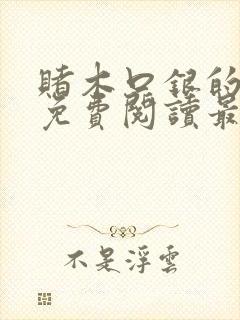 賭木口銀的
免費閱讀最
不是浮雲